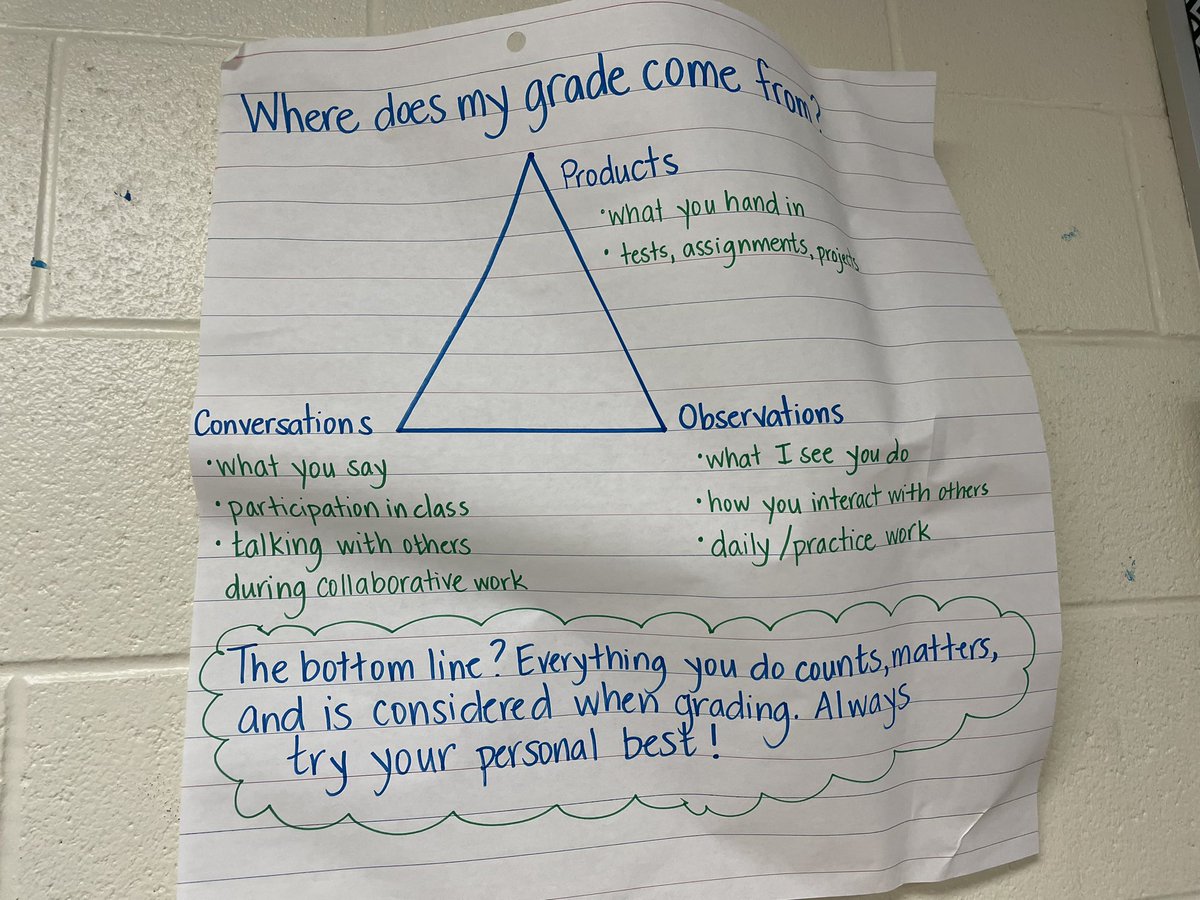 Where does my grade come from?
Products
• what you hand in
• tests, assignments, projects
Conversations
• what you say
• participation in class
• talking with others
during collaborative work
Observations
• what I see you do
• how you interact with others
• daily/practice work
The bottom line? Everything you do counts, matters,
and is considered when grading. Always
try your personal best!